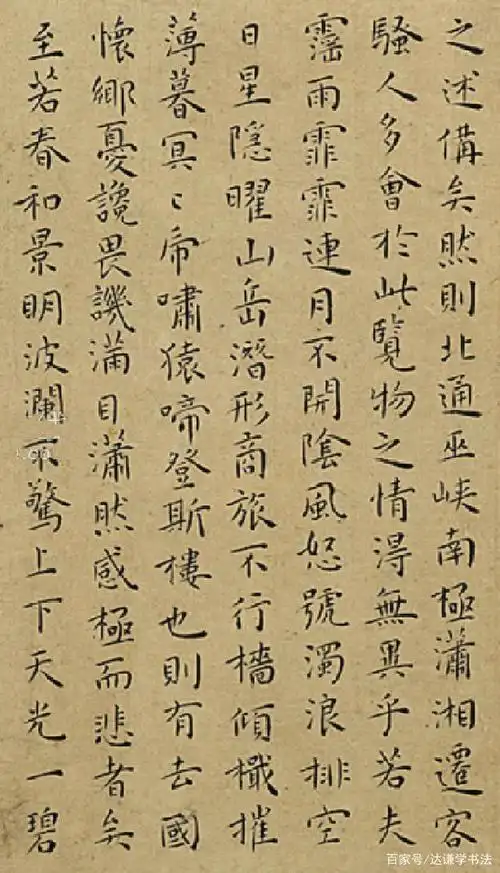 之述備矣然則北通巫峽南極瀟湘遷客
騷人多會於此覽物之情得無異乎若夫
霪雨霏霏連月不開陰風怒號濁浪排空
日星隱曜山岳潛形商旅不行檣傾檝摧
薄暮冥〻乕嘯猿啼登斯樓也則有去國
懷鄉憂讒畏譏滿目瀟然感極而悲者矣
至若春和景明波瀾不驚上下天光一碧
百家号/达谦学书法